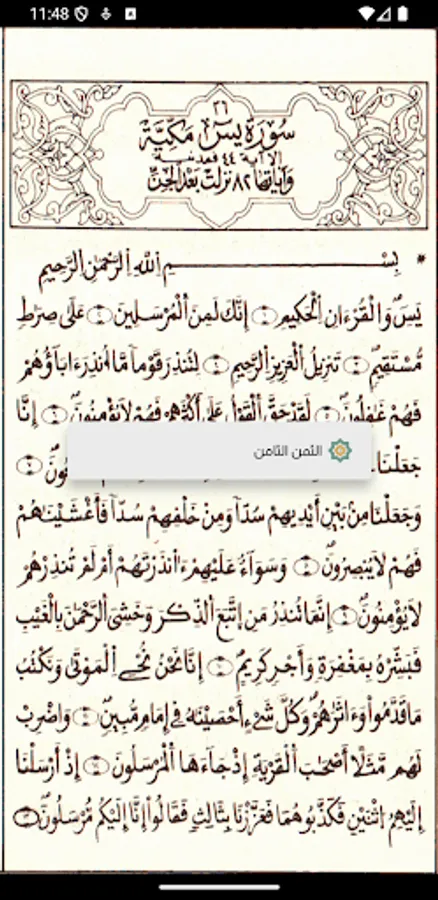 11:48
٣٦
سُورَة يسٓ مَكِيَّة
إلا آية ٤٤ فمدنية
وآياتها ٨٢ نزلت بعد الجن
* بِسْمِ اِ۬للَّهِ اِ۬لرَّحْمَٰنِ اِ۬لرَّحِيمِ
يَسٓ وَالْقُرْءَانِ اِ۬لْحَكِيمِ إِنَّكَ لَمِنَ اَ۬لْمُرْسَلِينَ عَلَىٰ صِرَٰطٖ
مُّسْتَقِيمٖ تَنزِيلُ اُ۬لْعَزِيزِ اِ۬لرَّحِيمِ لِتُنذِرَ قَوْماٗ مَّآ أُنذِرَ ءَابَآؤُهُمْ
فَهُمْ غَٰفِلُونَ لَقَدْ حَقَّ اَ۬لْقَوْلُ عَلَىٰٓ أَكْثَرِهِمْ فَهُمْ لَا يُؤْمِنُونَ إِنَّا
جَعَلْنَا
الثمن الثامن
وَجَعَلْنَا مِنۢ بَيْنِ أَيْدِيهِمْ سُدّاٗ وَمِنْ خَلْفِهِمْ سُدّاٗ فَأَغْشَيْنَٰهُمْ
فَهُمْ لَا يُبْصِرُونَ وَسَوَآءٌ عَلَيْهِمُۥٓ ءَآنذَرْتَهُمُۥٓ أَمْ لَمْ تُنذِرْهُمْ
لَا يُؤْمِنُونَ إِنَّمَا تُنذِرُ مَنِ اِ۪تَّبَعَ اَ۬لذِّكْرَ وَخَشِيَ اَ۬لرَّحْمَٰنَ بِالْغَيْبِ
فَبَشِّرْهُ بِمَغْفِرَةٖ وَأَجْرٖ كَرِيمٍ إِنَّا نَحْنُ نُحْيِ اِ۬لْمَوْتَىٰ وَنَكْتُبُ
مَا قَدَّمُواْ وَءَاثَٰرَهُمْ وَكُلَّ شَيْءٍ أَحْصَيْنَٰهُ فِي إِمَامٖ مُّبِينٖ وَاضْرِبْ
لَهُم مَّثَلًا أَصْحَٰبَ اَ۬لْقَرْيَةِ إِذْ جَآءَهَا اَ۬لْمُرْسَلُونَ إِذْ أَرْسَلْنَا
إِلَيْهِمُ اُ۪ثْنَيْنِ فَكَذَّبُوهُمَا فَعَزَّزْنَا بِثَالِثٖ فَقَالُوٓاْ إِنَّآ إِلَيْكُم مُّرْسَلُونَ